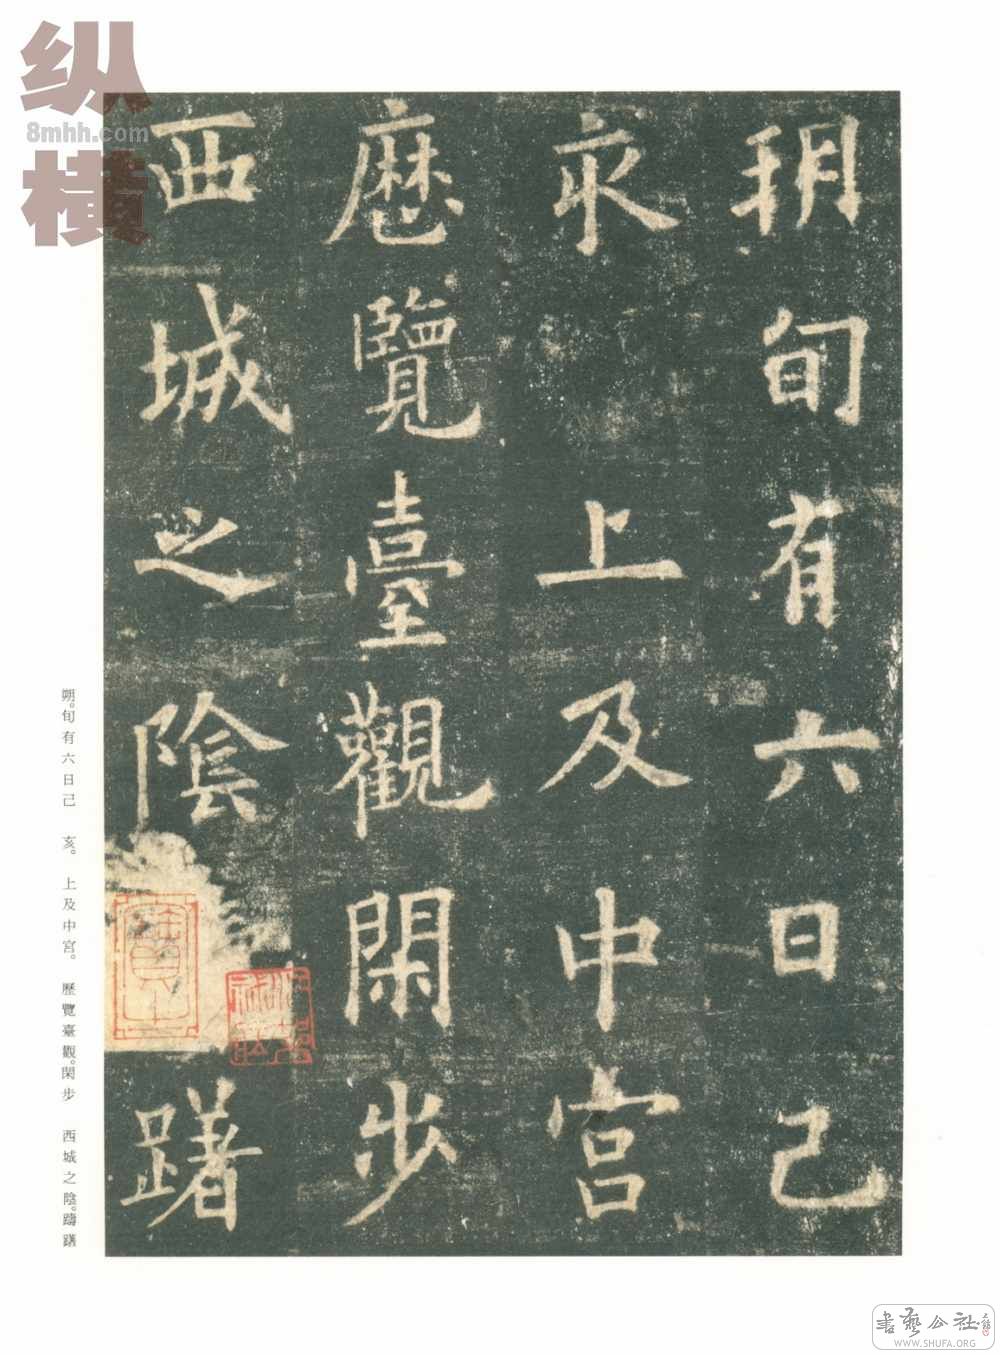 朔旬有六日己
亥上及中宮
歷覽臺觀閑步
西城之陰躇
朔。旬有六日己 亥。 上及中宮。 歷覽臺觀。閑步 西城之陰。躊躇
纵横
8mhh.com
書藝公社
WWW.SHUFA.ORG